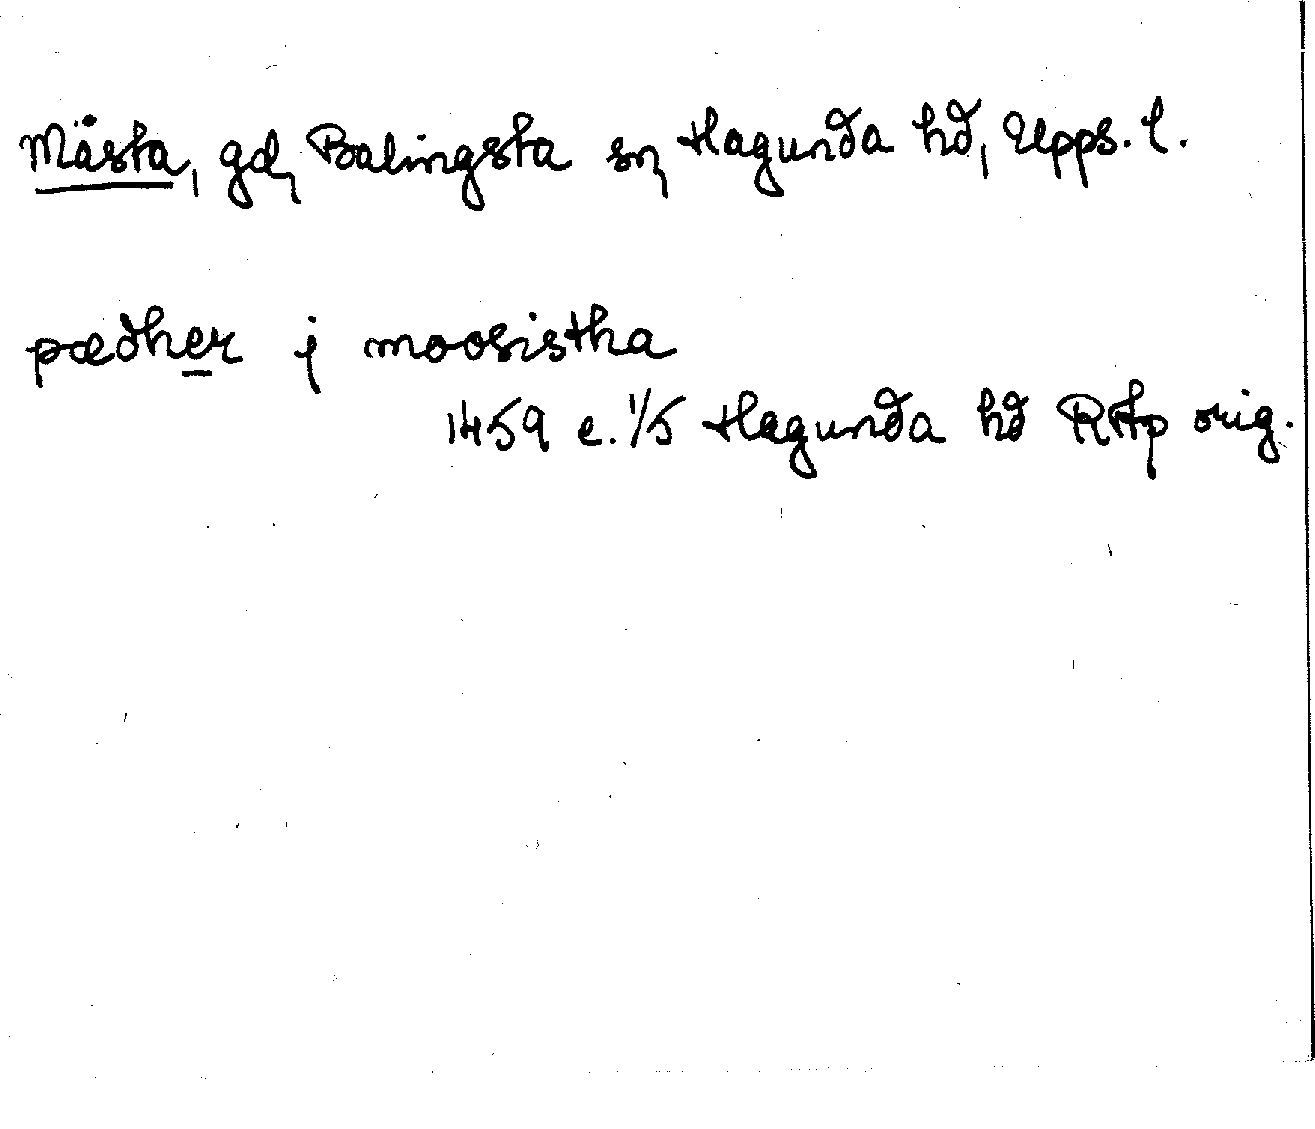 Måsta, gd, Balingsta sn, Hagunda hd, Upps. l.
pædher j moosistha
1459 e. 1/5 Hagunda hd RAp orig.